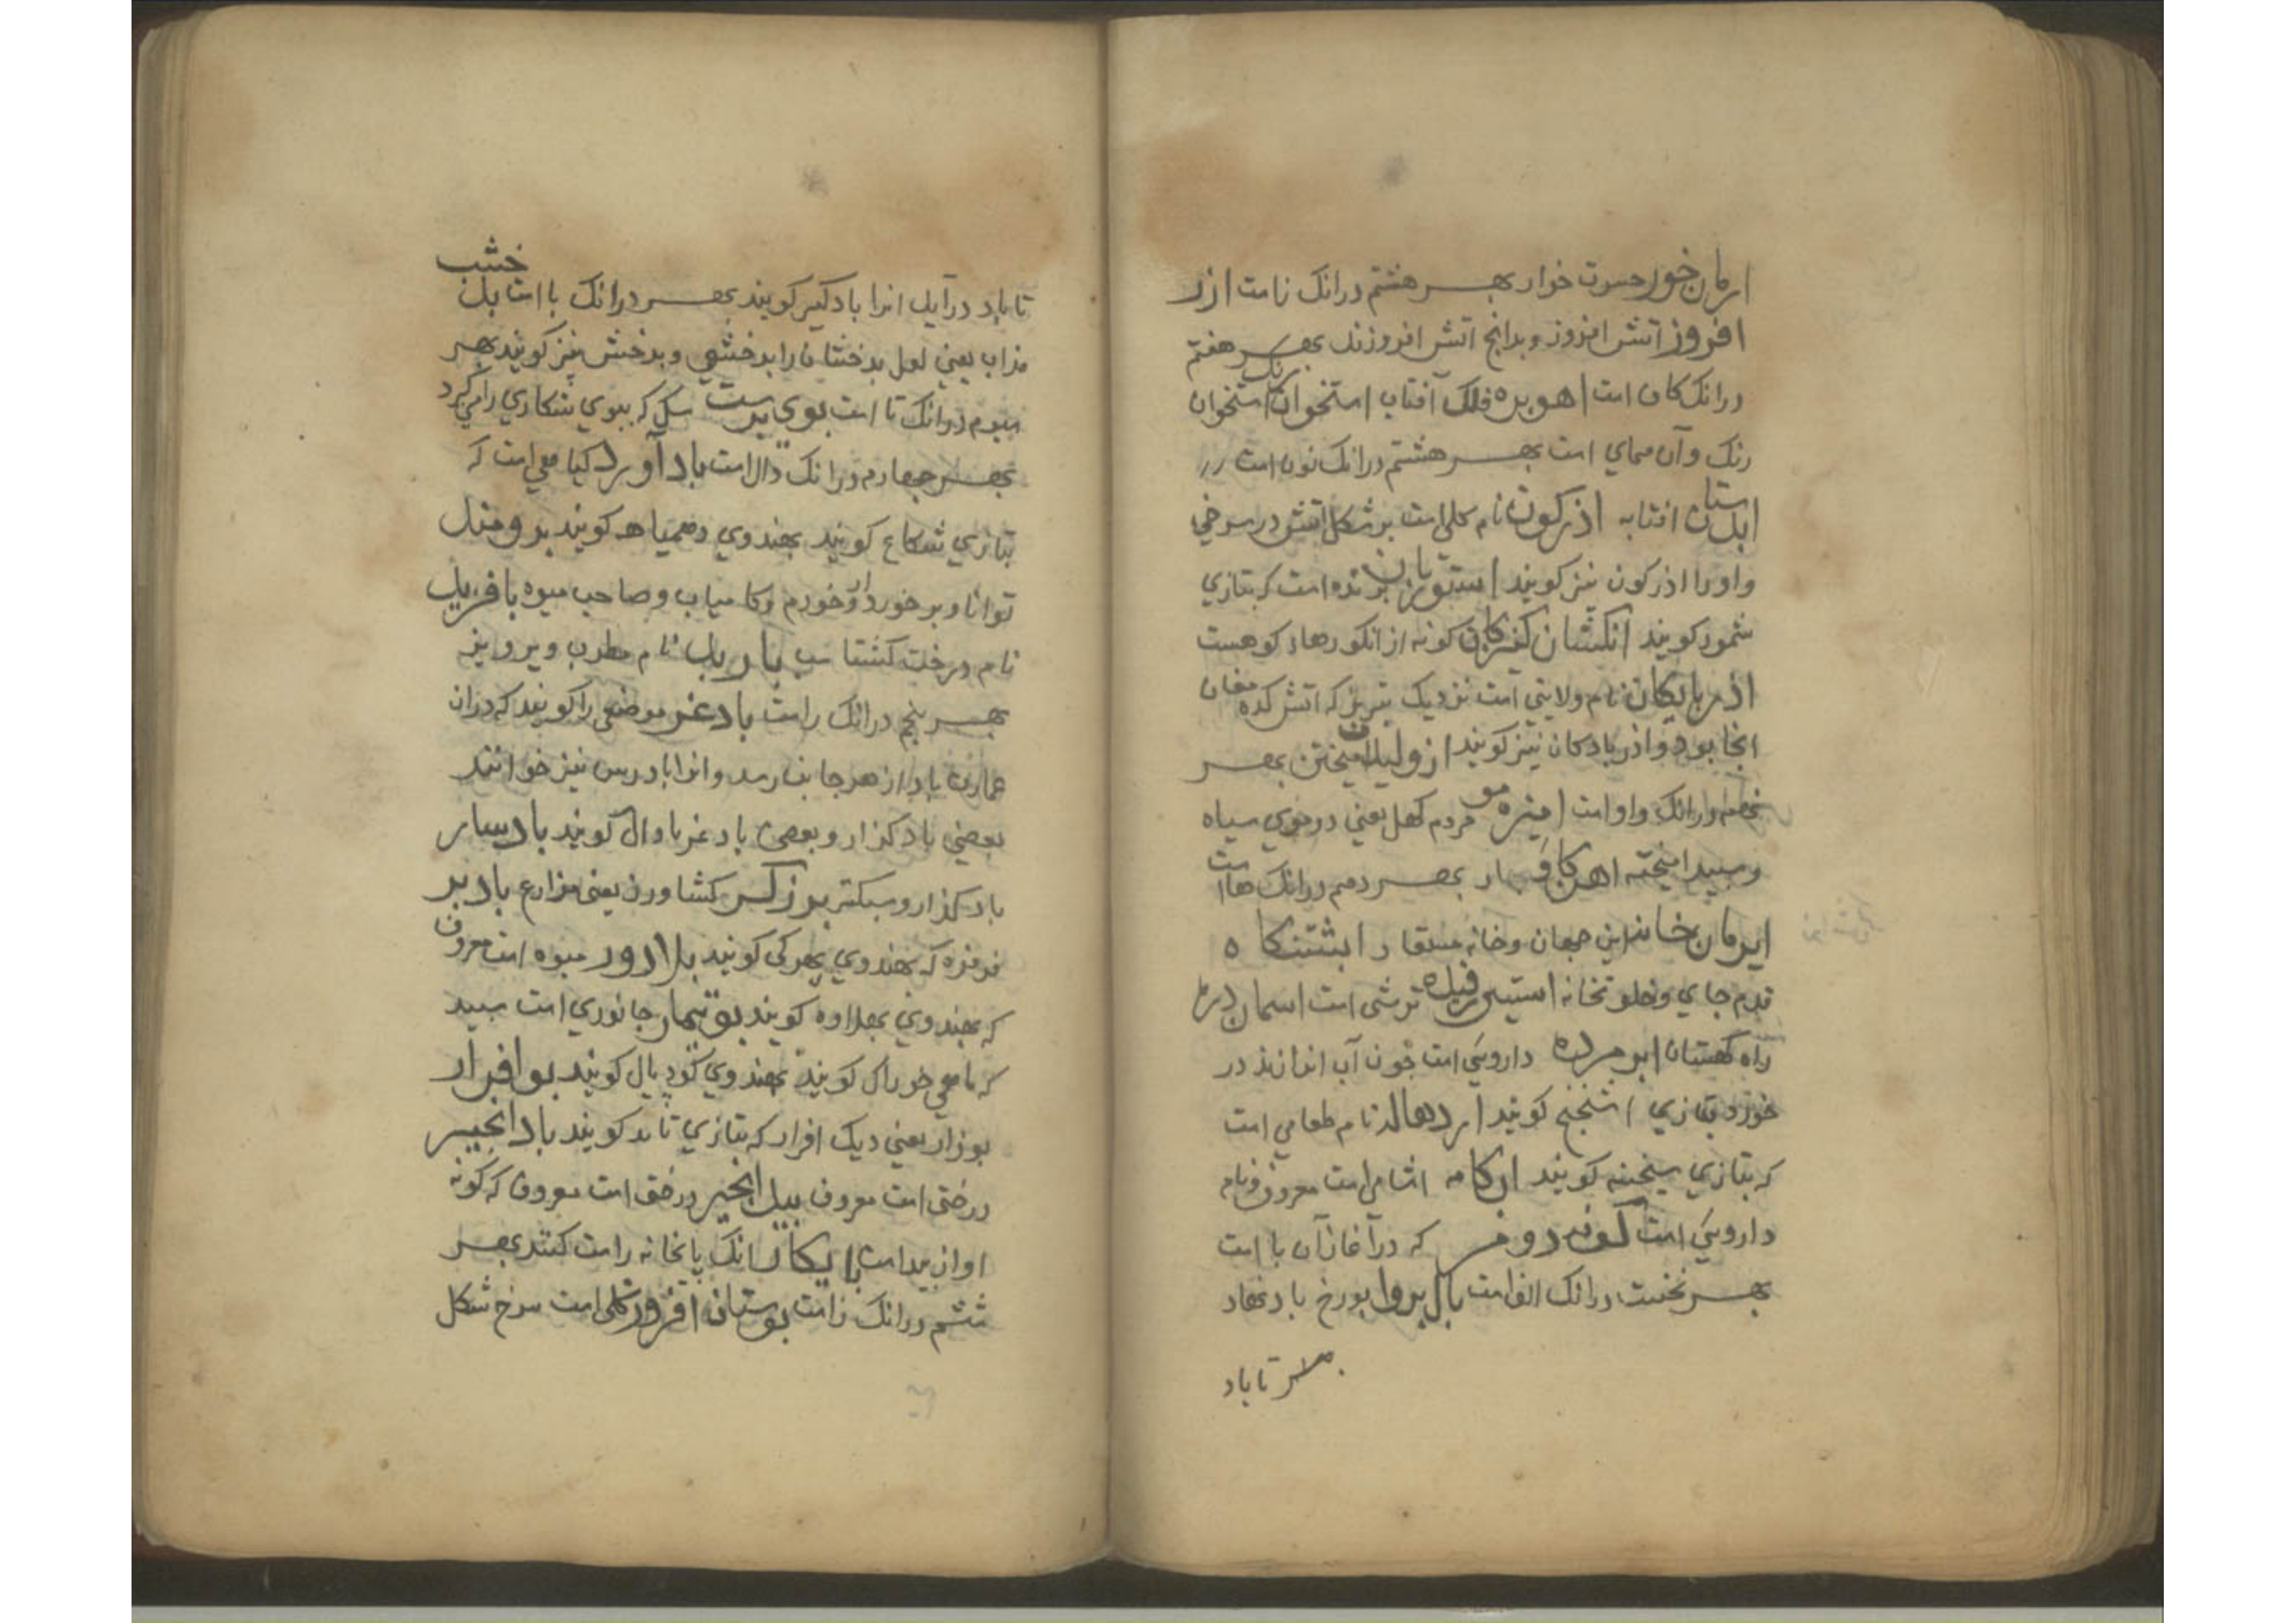 ارمان خور حسرت خوار بهر هشتم درانک زامت ازر
افروز آتش افروز و بدانج اتش افروزند بهر هفتم
درانک کاف است اهوبره فلک آفتاب استخوان رنک استخوان
رنک وآن همای است بهر هشتم درانک نون است
ابدستان افتابه اذرکون نام کلی است بر شکل اتش در سرخی
و اورا اذرکون نیز کویند است که بتازی
ثمود کویند انکشان کنزکان کونه از انکورهاء کوهست
اذربایکان نام ولایتی است نزدیک تبریز که اتش کده مغان
انجا بود و اذربادکان نیز کویند ازولیدن امیختن بهر
نهم درانک واو است امیزه مو مردم کهل یعنی در موی سیاه
و سپید امیخته اهرکاو بهر دهم درانک ها است
ایرمان خانه این جهان و خانه مستعار ابشتنکاه
قدم جای و خلوتخانه استیی ترشی است اسمان دره
راه کهکشان ابر مرده داروئی است چون آب اندازند در
خورد بتازی اسفنج کویند اردهاله نام طعامی است
که بتازی سخینه کویند ابکامه اشامی است معروف و نام
داروئی است کونه دوم که درآغاز آن با است
بهر نخست درانک الف است بال بروا بورخ بادنهاد
تا باد
تا باد درآید انرا بادکیر کویند بهر درانک با است بدخشب
مذاب یعنی لعل بدخشان را بدخشی و بدخش نیز کویند بهر
سیوم درانک تا است بوی پرست سکی که ببوی شکاری را میکیرد
بهر جهارم درانک دال است بادآورد کیاهی است که
بتازی شکاع کویند بهندوی دهمیاهه کویند برومند
توانا و برخوردار و خورم و کامیاب و صاحب میوه بافرید
نام درخت کشتاسب باربد نام مطرب پرویز
بهر پنجم درانک را است بادغر موضعی را کویند که دران
عمارت باد از هر جانب رسد و انرا بادرس نیز خوانند
بعضی بادکذار و بعضی بادغر با دال کویند بادسار
بادکذار و سبکسر برزکر کشاورز یعنی مزارع بادبر
فرفره که بهندوی بهرکی کویند بلادور میوه است معروف
که بهندوی بهلاوه کویند بوتیمار جانوری است سپید
که ماهی خوراک کویند بهندوی کودیال کویند بوافزار
بوزار یعنی دیک افزار که بتازی تابد کویند بادانجیر
درختی است معروف بیدانجیر درختی است معروف که کونه
او ان بیداست بایکار انک پایخانه راست کنند بهر
ششم درانک زا است بوستان افروز کلی است سرخ شکل